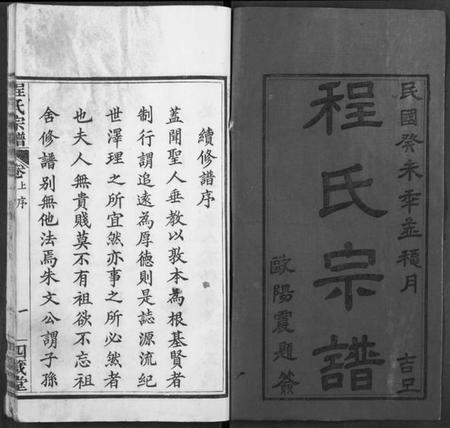 民國癸未年孟穐月
吉旦
程氏宗譜
歐陽震題簽
續修譜序
蓋聞聖人垂教以敦本為根基賢者
制行謂追遠為厚德則是誌源流紀
世澤理之所宜然亦事之所必然者
也夫人無貴賤莫不有祖欲不忘祖
舍修譜別無他法焉朱文公謂子孫
程氏宗譜
卷上序
一
四箴堂